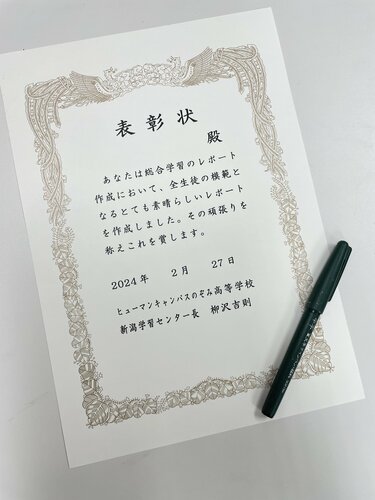 表彰状
殿
あなたは総合学習のレポート
作成において、全生徒の模範と
なるとても素晴らしいレポート
を作成しました。その頑張りを
称えこれを賞します。
2024年 2月 27日
ヒューマンキャンパスのぞみ高等学校
新潟学習センター長 柳沢吉則